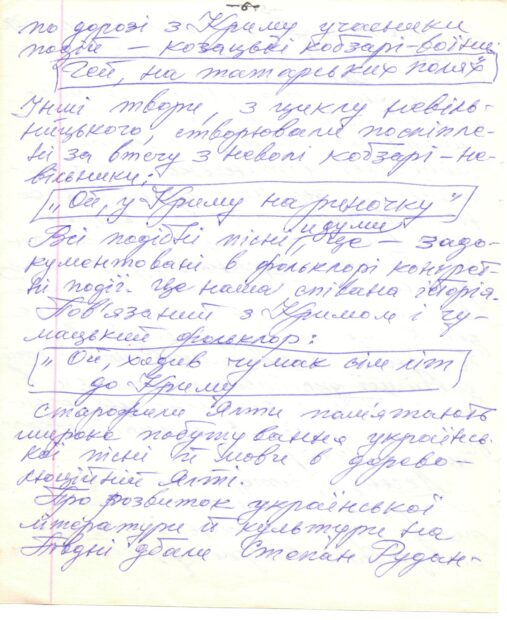 -6-
по дорозі з Криму учасники
подій – козацькі кобзарі-воїни:
"Гей, на татарських полях"
Інші твори, з циклу неволь-
ницького, створювали посліпле-
ні за втечу з неволі кобзарі-не-
вільники:
"Ой, у Криму на риночку"
Всі подібні пісні, і думи це – задо-
кументовані в фольклорі конкрет-
ні події. Це наша співана історія.
Пов'язаний з Кримом і чу-
мацький фольклор:
"Ой, ходив чумак сім літ
до Криму
старофили Ялти пам'ятають
широке побутування українсь-
кої пісні й мови в дорево-
люційній Ялті.
Про розвиток української
літератури й культури на
Півдні дбали Степан Рудан-